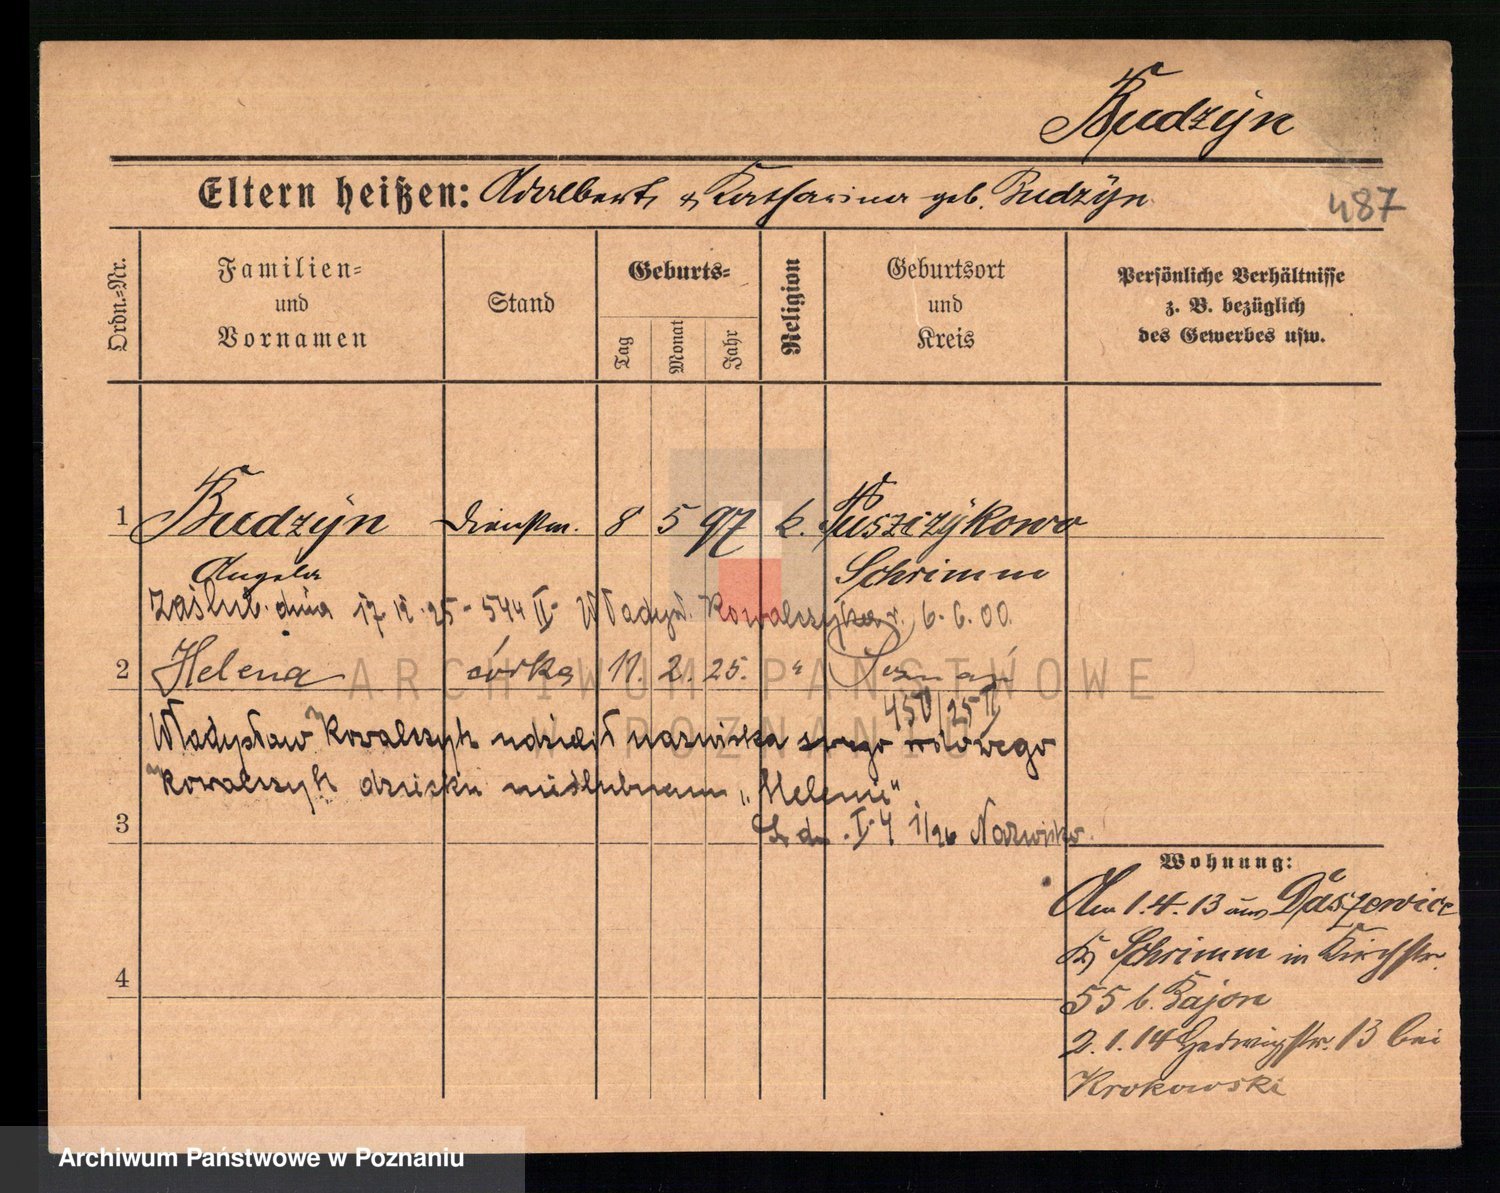 Budzÿn
Eltern heißen: Adalbert u Katharina geb. Budzÿn
487
Ordn.=Nr.
Familien=
und
Vornamen
Stand
Geburts=
Tag
Monat
Jahr
Religion
Geburtsort
und
Kreis
Persönliche Verhältnisse
z. B. bezüglich
des Gewerbes usw.
1 Budzÿn Dienstm. 8 5 97 k. Puszczÿkowo
Angela Schrimm
Zaślub. dnia 17. 12. 25 - 544 II - Władysł. Kowalczyka r. 6. 6. 00.
2 Helena córka 17. 2. 25. " Poznań
450/25 II
Władysław Kowalczyk udzielił nazwiska swego rodowego
Kowalczyk dziecku nieślubnemu „Helenie".
3
L. dz. I. 4 1/26 Nazwisko.
Wohnung:
Am 1. 4. 13 aus Daszewice
Kr Schrimm in Kirchstr.
55 b. Kajon
4
2. 1. 14 Hedwigstr. 13 bei
Krokowski
ARCHIWUM PAŃSTWOWE
W POZNANIU
Archiwum Państwowe w Poznaniu